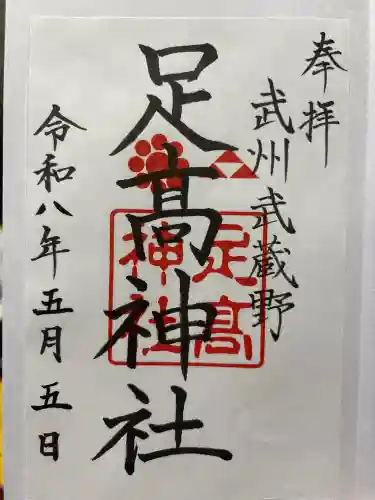 奉拝
武州武蔵野
足髙神社
足高神社
令和八年五月五日